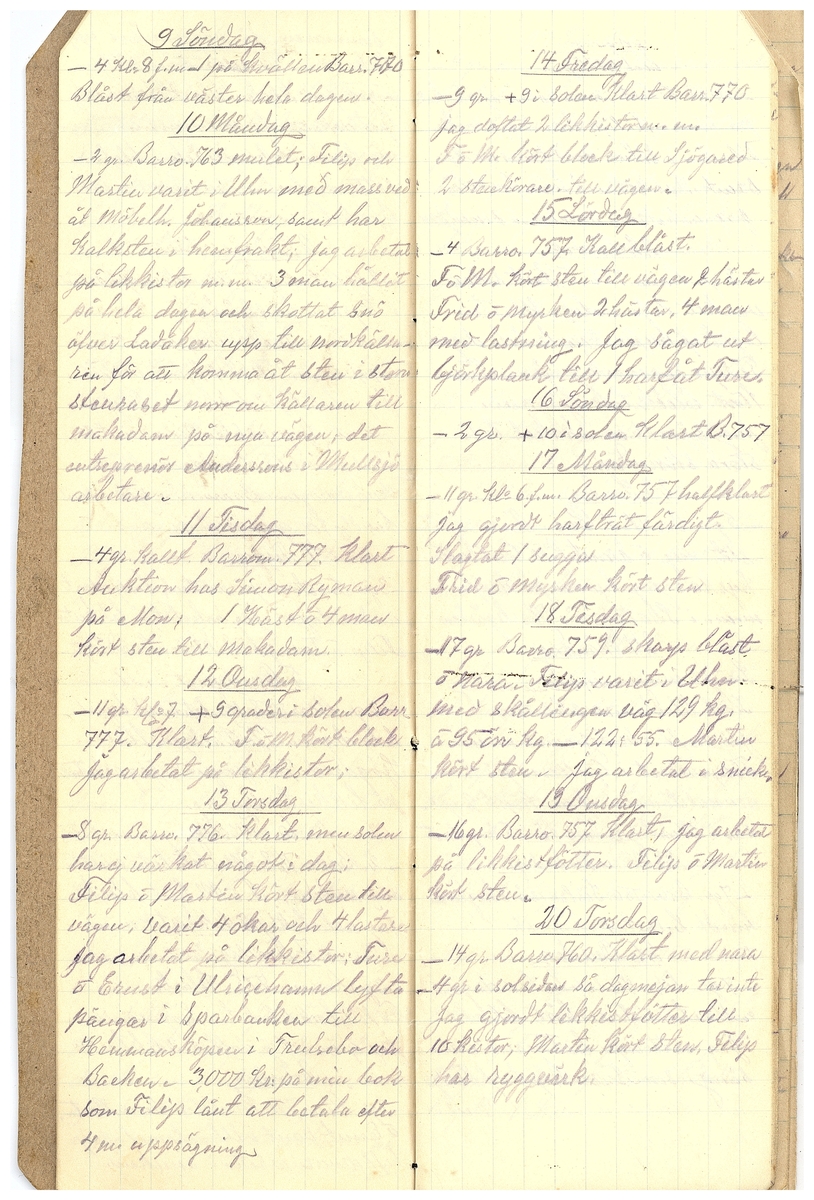 9 Söndag
-4 Kl. 8 f.m -1 på kvällen Barr. 770
Blåst från väster hela dagen.
10 Måndag
-2 gr. Barro. 763 mulet; Filip och
Martin varit i Uhn med massved
åt Möbelh. Johansson, samt har
Kalksten i hemfrakt; jag arbetat
på likkistor m.m. 3 man hållit
på hela dagen och skottat snö
öfver Ladåker upp till nordkälla-
ren för att komma åt sten i stora
stenraset norr om källaren till
makadam på nya vägen; det
entreprenör Anderssons i Mullsjö
arbetare.
11 Tisdag
-4 gr. Kallt Barrom. 777. Klart
Auktion hos Simon Ryman
på Mon; 1 Häst ö 4 man
kört sten till makadam
12 Onsdag
-11 gr. Kl. 7 +9 grader i solen Barr
777. Klart. F. ö M. kört block
Jag arbetat på likkistor;
13 Torsdag
-8 gr. Barro. 776. klart, men solen
har ej värkat något i dag;
Filip ö Martin kört sten till
vägen, varit 4 ökar och 4 lastare
Jag arbetat på likkistor; Ture
ö Ernst i Ulricehamn lyfta
pängar i Sparbanken till
Hemmansköpen i Trulsebo och
Backen. 3,000 Kr. på min bok
som Filip lånt att betala efter
4 m. uppsägning
14 Fredag
-9 gr. +9 i solen Klart Barr. 770
jag doftat 2 likkistor m.m.
F ö M. kört block till Sjögared
2 stenkörare till vägen.
15 Lördag
-4 Barro. 757. Kall blåst.
F ö M. kört sten till vägen 2 hästar
Frid ö Myrken 2 hästar, 4 man
med lastning. Jag sågat ut
björkplank till 1 harf åt Ture.
16 Söndag
-2 gr. +10 i solen Klart B. 757
17 Måndag
-11 gr. Kl. 6 f.m. Barro. 757 halfklart
Jag gjordt harfträt färdigt.
Slagtat 1 sugga
Frid ö Myrken kört sten
18 Tisdag
-17 gr Barro. 759. skarp blåst
ö nara. Filip varit i Uhn.
med skållengen väg 129 kg.
à 95 öre kg. - 122:55. Martin
kört sten. Jag arbetat i snick.
19 Onsdag
-16 gr. Barro. 757 Klart, jag arbetat
på likkistfötter. Filip ö Martin
kört sten.
20 Torsdag
-14 gr. Barro. 760. Klart med nara
-4 gr i solsidan så dagmejan tar inte
Jag gjordt likkistfötter till
10 kistor; Martin kört sten. Filip
har ryggvärk.